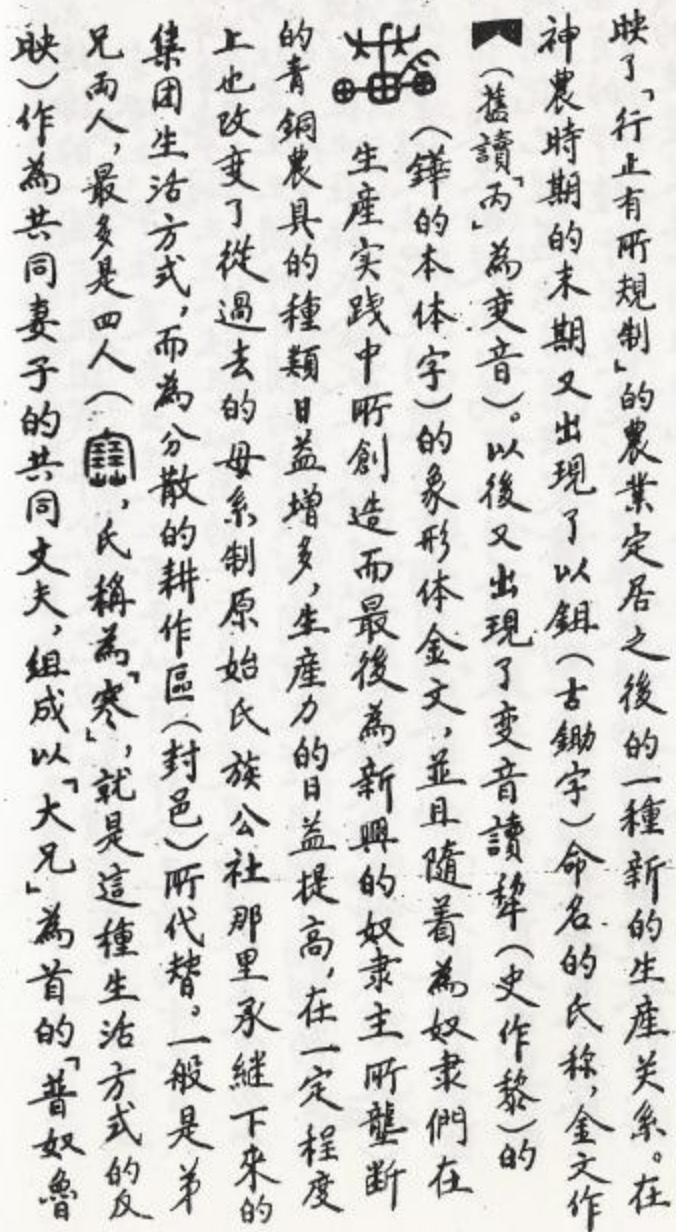 映了「行止有所規制」的農業定居之後的一種新的生産关系。在
神農時期的末期又出現了以鉏（古鋤字）命名的氏称，金文作
（舊讀「丙」為变音）。以後又出現了变音讀犂（史作黎）的
（鏵的本体字）的象形体金文，並且隨着為奴隶們在
生産实践中所創造而最後為新興的奴隶主所壟断
的青銅農具的種類日益增多，生産力的日益提高，在一定程度
上也改变了從過去的母系制原始氏族公社那里承继下來的
集团生活方式，而為分散的耕作區（封邑）所代替。一般是弟
兄両人，最多是四人（，氏稱為「寒」，就是這種生活方式的反
映）作為共同妻子的共同丈夫，組成以「大兄」為首的「普奴魯